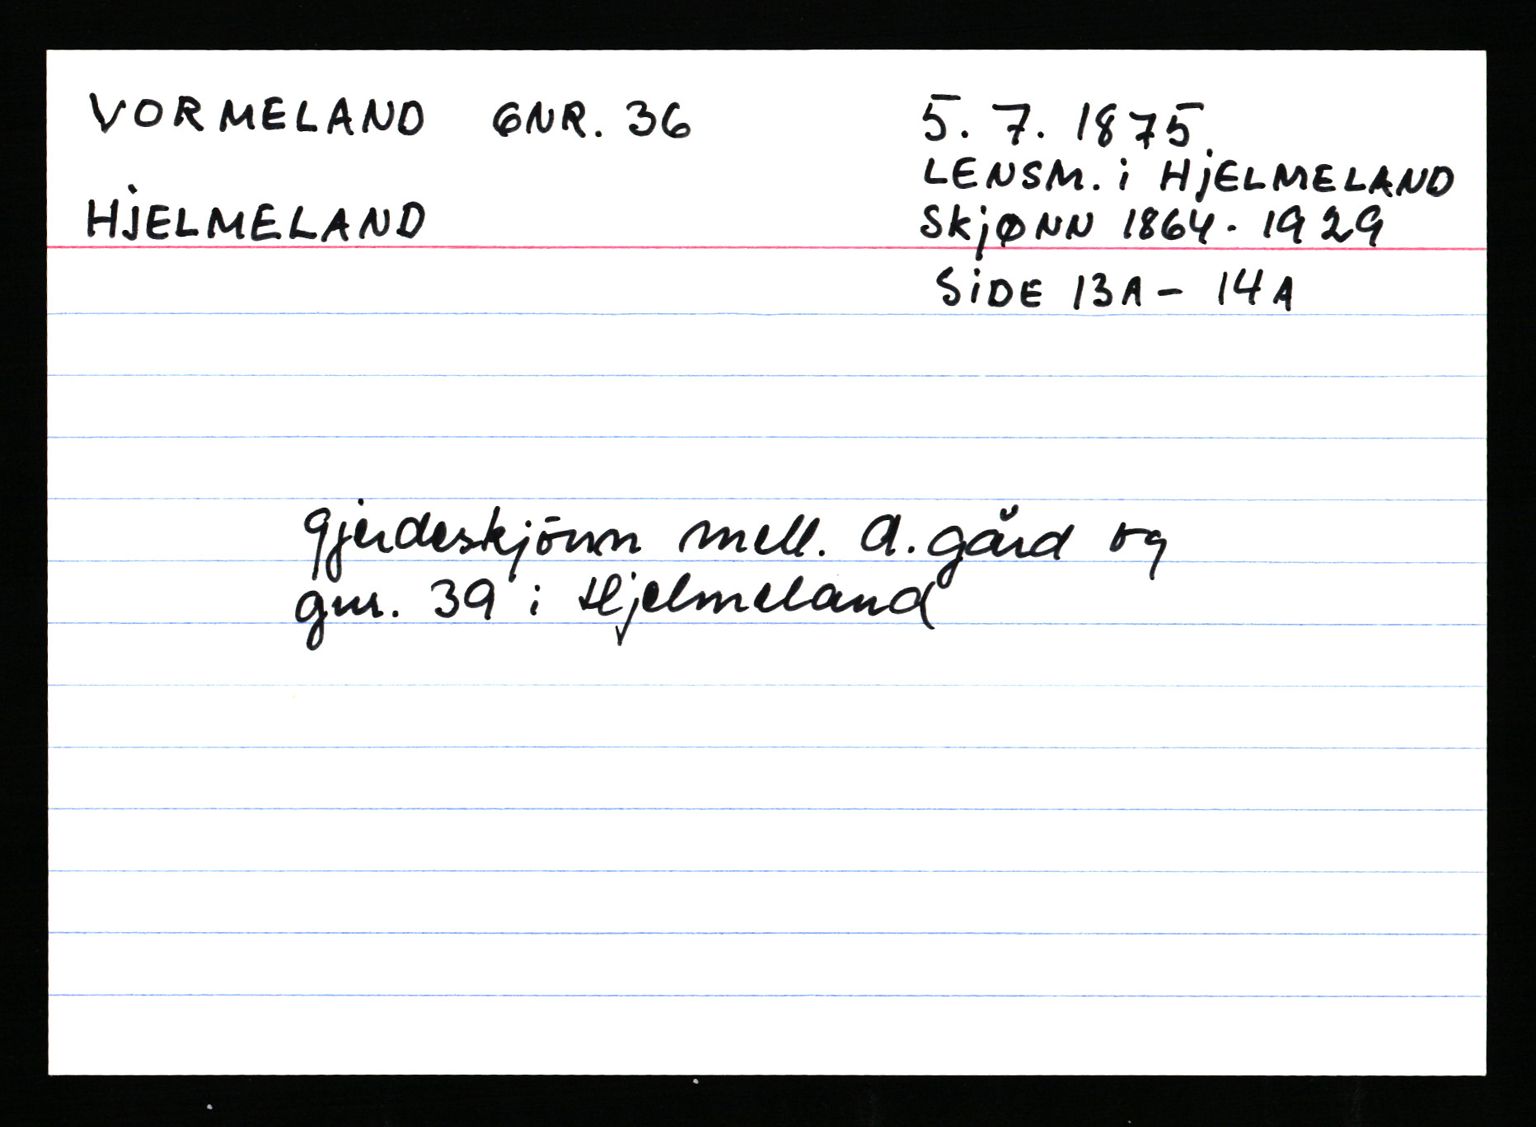 VORMELAND GNR. 36
HJELMELAND
5. 7. 1875
LENSM. i HJELMELAND
SKJØNN 1864 - 1929
SIDE 13A - 14A
gjerdeskjönn mell. a. gård og
gnr. 39 i Hjelmeland